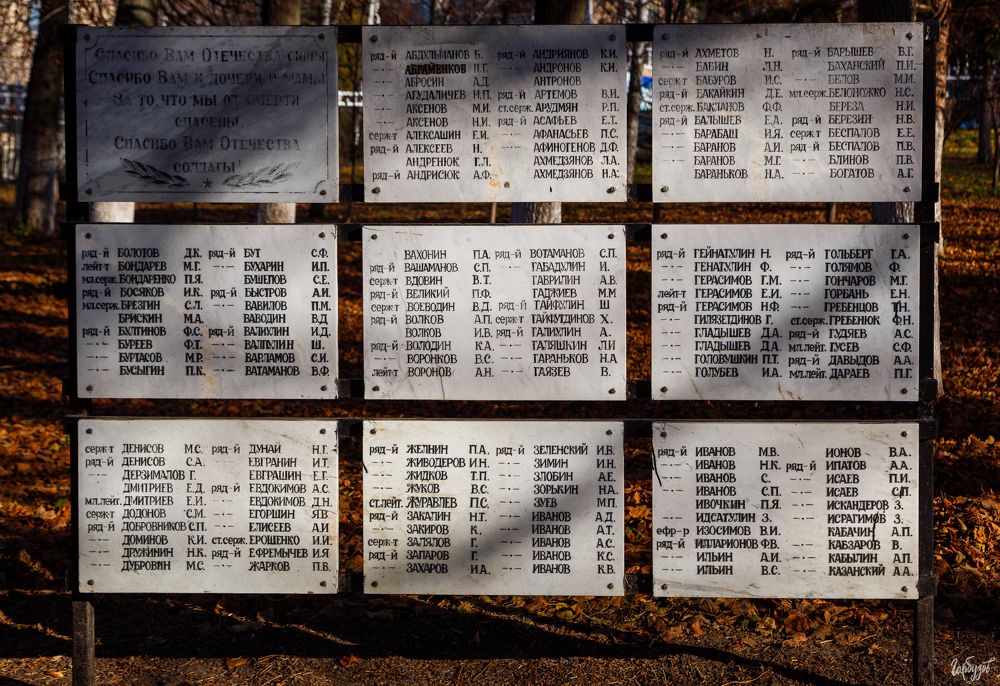 Спасибо Вам Отечества сыны
Спасибо Вам и дочери и мамы
За то, что мы от смерти
спасены.
Спасибо Вам Отечества
солдаты!
ряд-й АБДУЛЬМАНОВ Б. ряд-й АНДРИЯНОВ К.И.
-·- АБРАМЕНКОВ П.Г. -·- АНДРОНОВ К.И.
-·- АБРОСИН А.Д. -·- АНТРОНОВ
-·- АГУДАЛИЧЕВ Н.П. -·- АРТЕМОВ В.И.
-·- АКСЕНОВ М.И. ст.серж. АРУДМЯН Р.П.
-·- АКСЕНОВ Н.И. ряд-й АСАФЬЕВ Е.Т.
серж-т АЛЕКСАШИН Е.И. -·- АФАНАСЬЕВ П.С.
ряд-й АЛЕКСЕЕВ Н. -·- АФИНОГЕНОВ Д.Ф.
-·- АНДРЕНЮК Г.Л. -·- АХМЕДЗЯНОВ Л.А.
ряд-й АНДРИСЮК А.Ф. -·- АХМЕДЗЯНОВ Н.А.
ряд-й АХМЕТОВ Н. ряд-й БАРЫШЕВ В.Г.
-·- БАБИН Л.Н. -·- БАХАНСКИЙ П.И.
серж-т БАБУРОВ И.С. -·- БЕЛОВ М.М.
ряд-й БАКАЙКИН Д.Е. мл.серж. БЕЛОНОЖКО Н.С.
ст.серж. БАКЛАНОВ Ф.Ф. -·- БЕРЕЗА Н.И.
ряд-й БАЛЫШЕВ Е.А. ряд-й БЕРЕЗИН Н.В.
-·- БАРАБАШ И.Я. серж-т БЕСПАЛОВ Е.Е.
-·- БАРАНОВ А.И. ряд-й БЕСПАЛОВ П.В.
-·- БАРАНОВ М.Г. -·- БЛИНОВ П.В.
-·- БАРАНЬКОВ Н.А. -·- БОГАТОВ А.Г.
ряд-й БОЛОТОВ Д.К. ряд-й БУТ С.Ф.
лейт-т БОНДАРЕВ М.Г. -·- БУХАРИН И.П.
мл.серж. БОНДАРЕНКО П.Я. -·- БУШЕЛОВ С.Е.
ряд-й БОСЯКОВ И.К. ряд-й БЫСТРОВ А.И.
мл.серж. БРЕЗГИН С.Л. -·- ВАВИЛОВ П.М.
-·- БРИСКИН М.А. -·- ВАВОДИН В.Д.
ряд-й БУЛГИНОВ Ф.С. ряд-й ВАЛИУЛИН И.Д.
-·- БУРЕЕВ Ф.Т. -·- ВАЛГУЛИН Ш.
-·- БУРТАСОВ М.Р. -·- ВАРЛАМОВ С.И.
-·- БУСЫГИН П.К. -·- ВАТАМАНОВ В.Ф.
ВАХОНИН П.А. ряд-й ВОТАМАНОВ С.П.
ряд-й ВАШАМАНОВ С.П. -·- ГАБАДУЛИН И.
серж-т ВДОВИН В.Т. -·- ГАВРИЛИН А.В.
ряд-й ВЕЛИКИЙ П.Ф. -·- ГАДЖИЕВ М.М.
серж-т ВОЕВОДИН В.Д. ряд-й ГАЙФУЛИН Ш
ряд-й ВОЛКОВ А.П. серж-т ГАЙФУТДИНОВ Х.
-·- ВОЛКОВ И.В. ряд-й ГАЛИУХИН А.
ряд-й ВОЛОДИН К.А. -·- ГАЛЯШКИН Л.И
-·- ВОРОНКОВ В.С. -·- ГАРАНЬКОВ Н.А.
лейт-т ВОРОНОВ А.Н. -·- ГАЯЗЕВ В.
ряд-й ГЕЙНАТУЛИН Н. ряд-й ГОЛЬБЕРГ Г.А.
-·- ГЕНАТУЛИН Ф. -·- ГОЛЯМОВ Ф.
-·- ГЕРАСИМОВ Г.М. -·- ГОНЧАРОВ М.Г.
лейт-т ГЕРАСИМОВ Е.И. -·- ГОРБАНЬ Е.Н.
ряд-й ГЕРАСИМОВ Н.Ф. -·- ГРЕБЕНЦОВ Т.Н.
-·- ГИЛЯЗЕТДИНОВ Г. ст.серж. ГРЕБЕНЮК Ф.Н.
-·- ГЛАДЫШЕВ Д.А. ряд-й ГУДЯЕВ А.С.
-·- ГЛАДЫШЕВ Д.А. мл.лейт. ГУСЕВ С.Ф.
-·- ГОЛОВУШКИН П.Т. ряд-й ДАВЫДОВ А.А.
-·- ГОЛУБЕВ И.А. мл.лейт. ДАРАЕВ П.Г.
серж-т ДЕНИСОВ М.С. ряд-й ДУНАЙ Н.Г.
ряд-й ДЕНИСОВ С.А. -·- ЕВГРАНИН И.Т.
-·- ДЕРЗИМАЛОВ Г. -·- ЕВГРАШИН Е.Г.
-·- ДМИТРИЕВ Е.Д. ряд-й ЕВДОКИМОВ А.С.
мл.лейт. ДМИТРИЕВ Е.И. -·- ЕВДОКИМОВ Д.Н.
серж-т ДОДОНОВ С.М. -·- ЕГОРШИН Я.В
ряд-й ДОБРОВНИКОВ С.П. -·- ЕЛИСЕЕВ А.И
-·- ДОМИНОВ К.И. ст.серж. ЕРОШЕНКО И.И.
-·- ДРУЖИНИН Н.К. ряд-й ЕФРЕМЫЧЕВ И.Я
-·- ДУБРОВИН М.С. -·- ЖАРКОВ П.В.
ряд-й ЖЕЛНИН П.А. ряд-й ЗЕЛЕНСКИЙ И.В.
-·- ЖИВОДЕРОВ И.Н. -·- ЗИМИН И.Н.
-·- ЖИДКОВ Т.П. -·- ЗЛОБИН А.Е.
-·- ЖУКОВ В.С. -·- ЗОРЬКИН Н.А.
ст.лейт. ЖУРАВЛЕВ П.С. -·- ЗУЕВ М.П.
ряд-й ЗАКАЛИН Н.Т. -·- ИВАНОВ А.Д.
-·- ЗАКИРОВ К. -·- ИВАНОВ А.Т.
серж-т ЗАЛЯЛОВ Г. -·- ИВАНОВ А.С.
ряд-й ЗАПАРОВ Г. -·- ИВАНОВ К.С.
-·- ЗАХАРОВ И.А. -·- ИВАНОВ К.В.
ряд-й ИВАНОВ М.В. -·- ИОНОВ В.А.
-·- ИВАНОВ Н.К. ряд-й ИПАТОВ А.А.
-·- ИВАНОВ С. -·- ИСАЕВ П.И.
-·- ИВАНОВ С.П. -·- ИСАЕВ С.П.
-·- ИВОЧКИН П.Я. -·- ИСКАНДЕРОВ З.
-·- ИДСАТУЛИН З. -·- ИСРАГИМОВ З.
ефр-р ИЗОСИМОВ В.И. -·- КАБАЧИН А.П.
ряд-й ИЛЛАРИОНОВ Ф.В. -·- КАБЗАРОВ В.
-·- ИЛЬИН А.И. -·- КАБЫЛИН А.П.
-·- ИЛЬИН В.С. -·- КАЗАНСКИЙ А.А.
Гарбузов